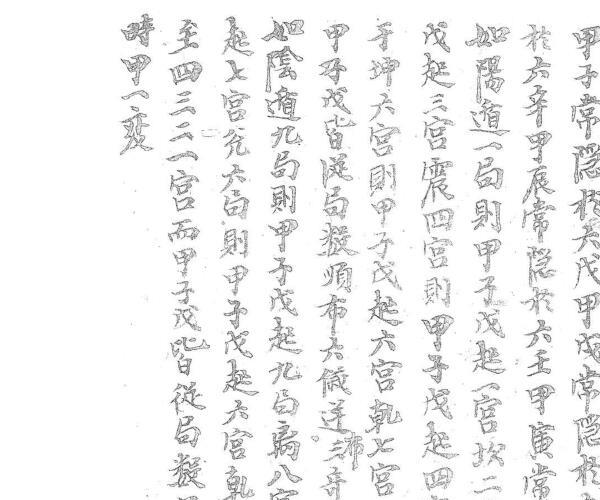 甲子常隱於六戊甲戌常隱於
於六辛甲辰常隱於六壬甲寅常
如陽遁一局則甲子戊起一宮坎二
戊起三宮震四宮則甲子戊起四
于坤六宮則甲子戊起六宮乾七宮
甲子戊皆從局數順布六儀逆布三奇
如陰遁九局則甲子戊起九局离八宮
起七宮兌六局則甲子戊起六宮乾
至四三二一宮而甲子戊皆從局數
時甲一変